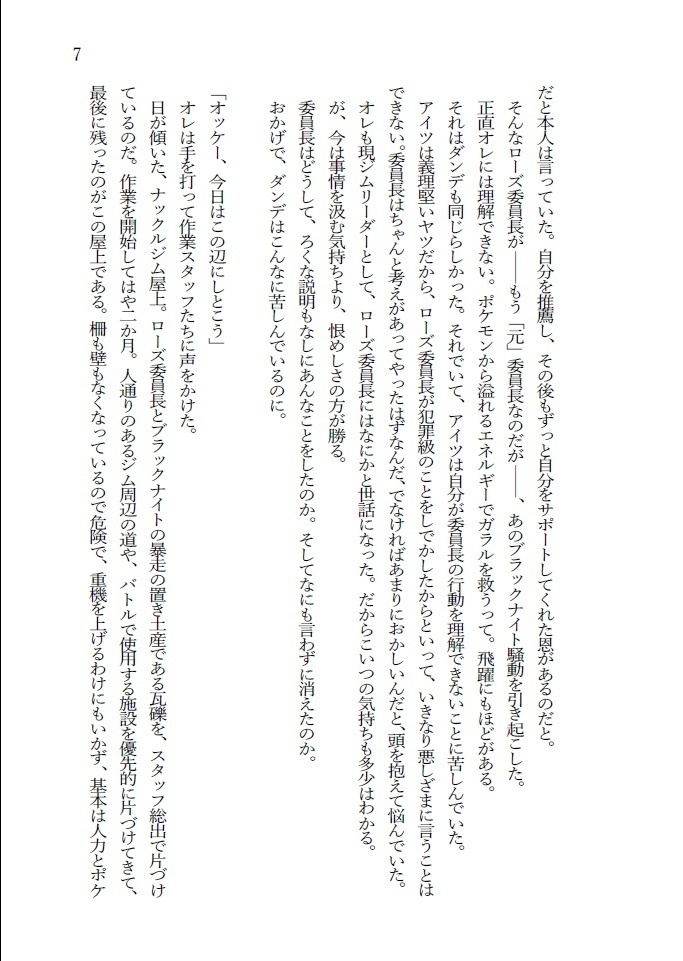 7
だと本人は言っていた。自分を推薦し、その後もずっと自分をサポートしてくれた恩があるのだと。
そんなローズ委員長が――もう「元」委員長なのだが――、あのブラックナイト騒動を引き起こした。
正直オレには理解できない。ポケモンから溢れるエネルギーでガラルを救うって。飛躍にもほどがある。
それはダンデも同じらしかった。それでいて、アイツは自分が委員長の行動を理解できないことに苦しんでいた。
アイツは義理堅いヤツだから、ローズ委員長が犯罪級のことをしでかしたからといって、いきなり悪しざまに言うことは
できない。委員長はちゃんと考えがあってやったはずなんだ、でなければあまりにおかしいんだと、頭を抱えて悩んでいた。
オレも現ジムリーダーとして、ローズ委員長にはなにかと世話になった。だからこいつの気持ちも多少はわかる。
が、今は事情を汲む気持ちより、恨めしさの方が勝る。
委員長はどうして、ろくな説明もなしにあんなことをしたのか。そしてなにも言わずに消えたのか。
おかげで、ダンデはこんなに苦しんでいるのに。
「オッケー、今日はこの辺にしとこう」
オレは手を打って作業スタッフたちに声をかけた。
日が傾いた、ナックルジム屋上。ローズ委員長とブラックナイトの暴走の置き土産である瓦礫を、スタッフ総出で片づけ
ているのだ。作業を開始してはや二か月。人通りのあるジム周辺の道や、バトルで使用する施設を優先的に片づけてきて、
最後に残ったのがこの屋上である。柵も壁もなくなっているので危険で、重機を上げるわけにもいかず、基本は人力とポケ